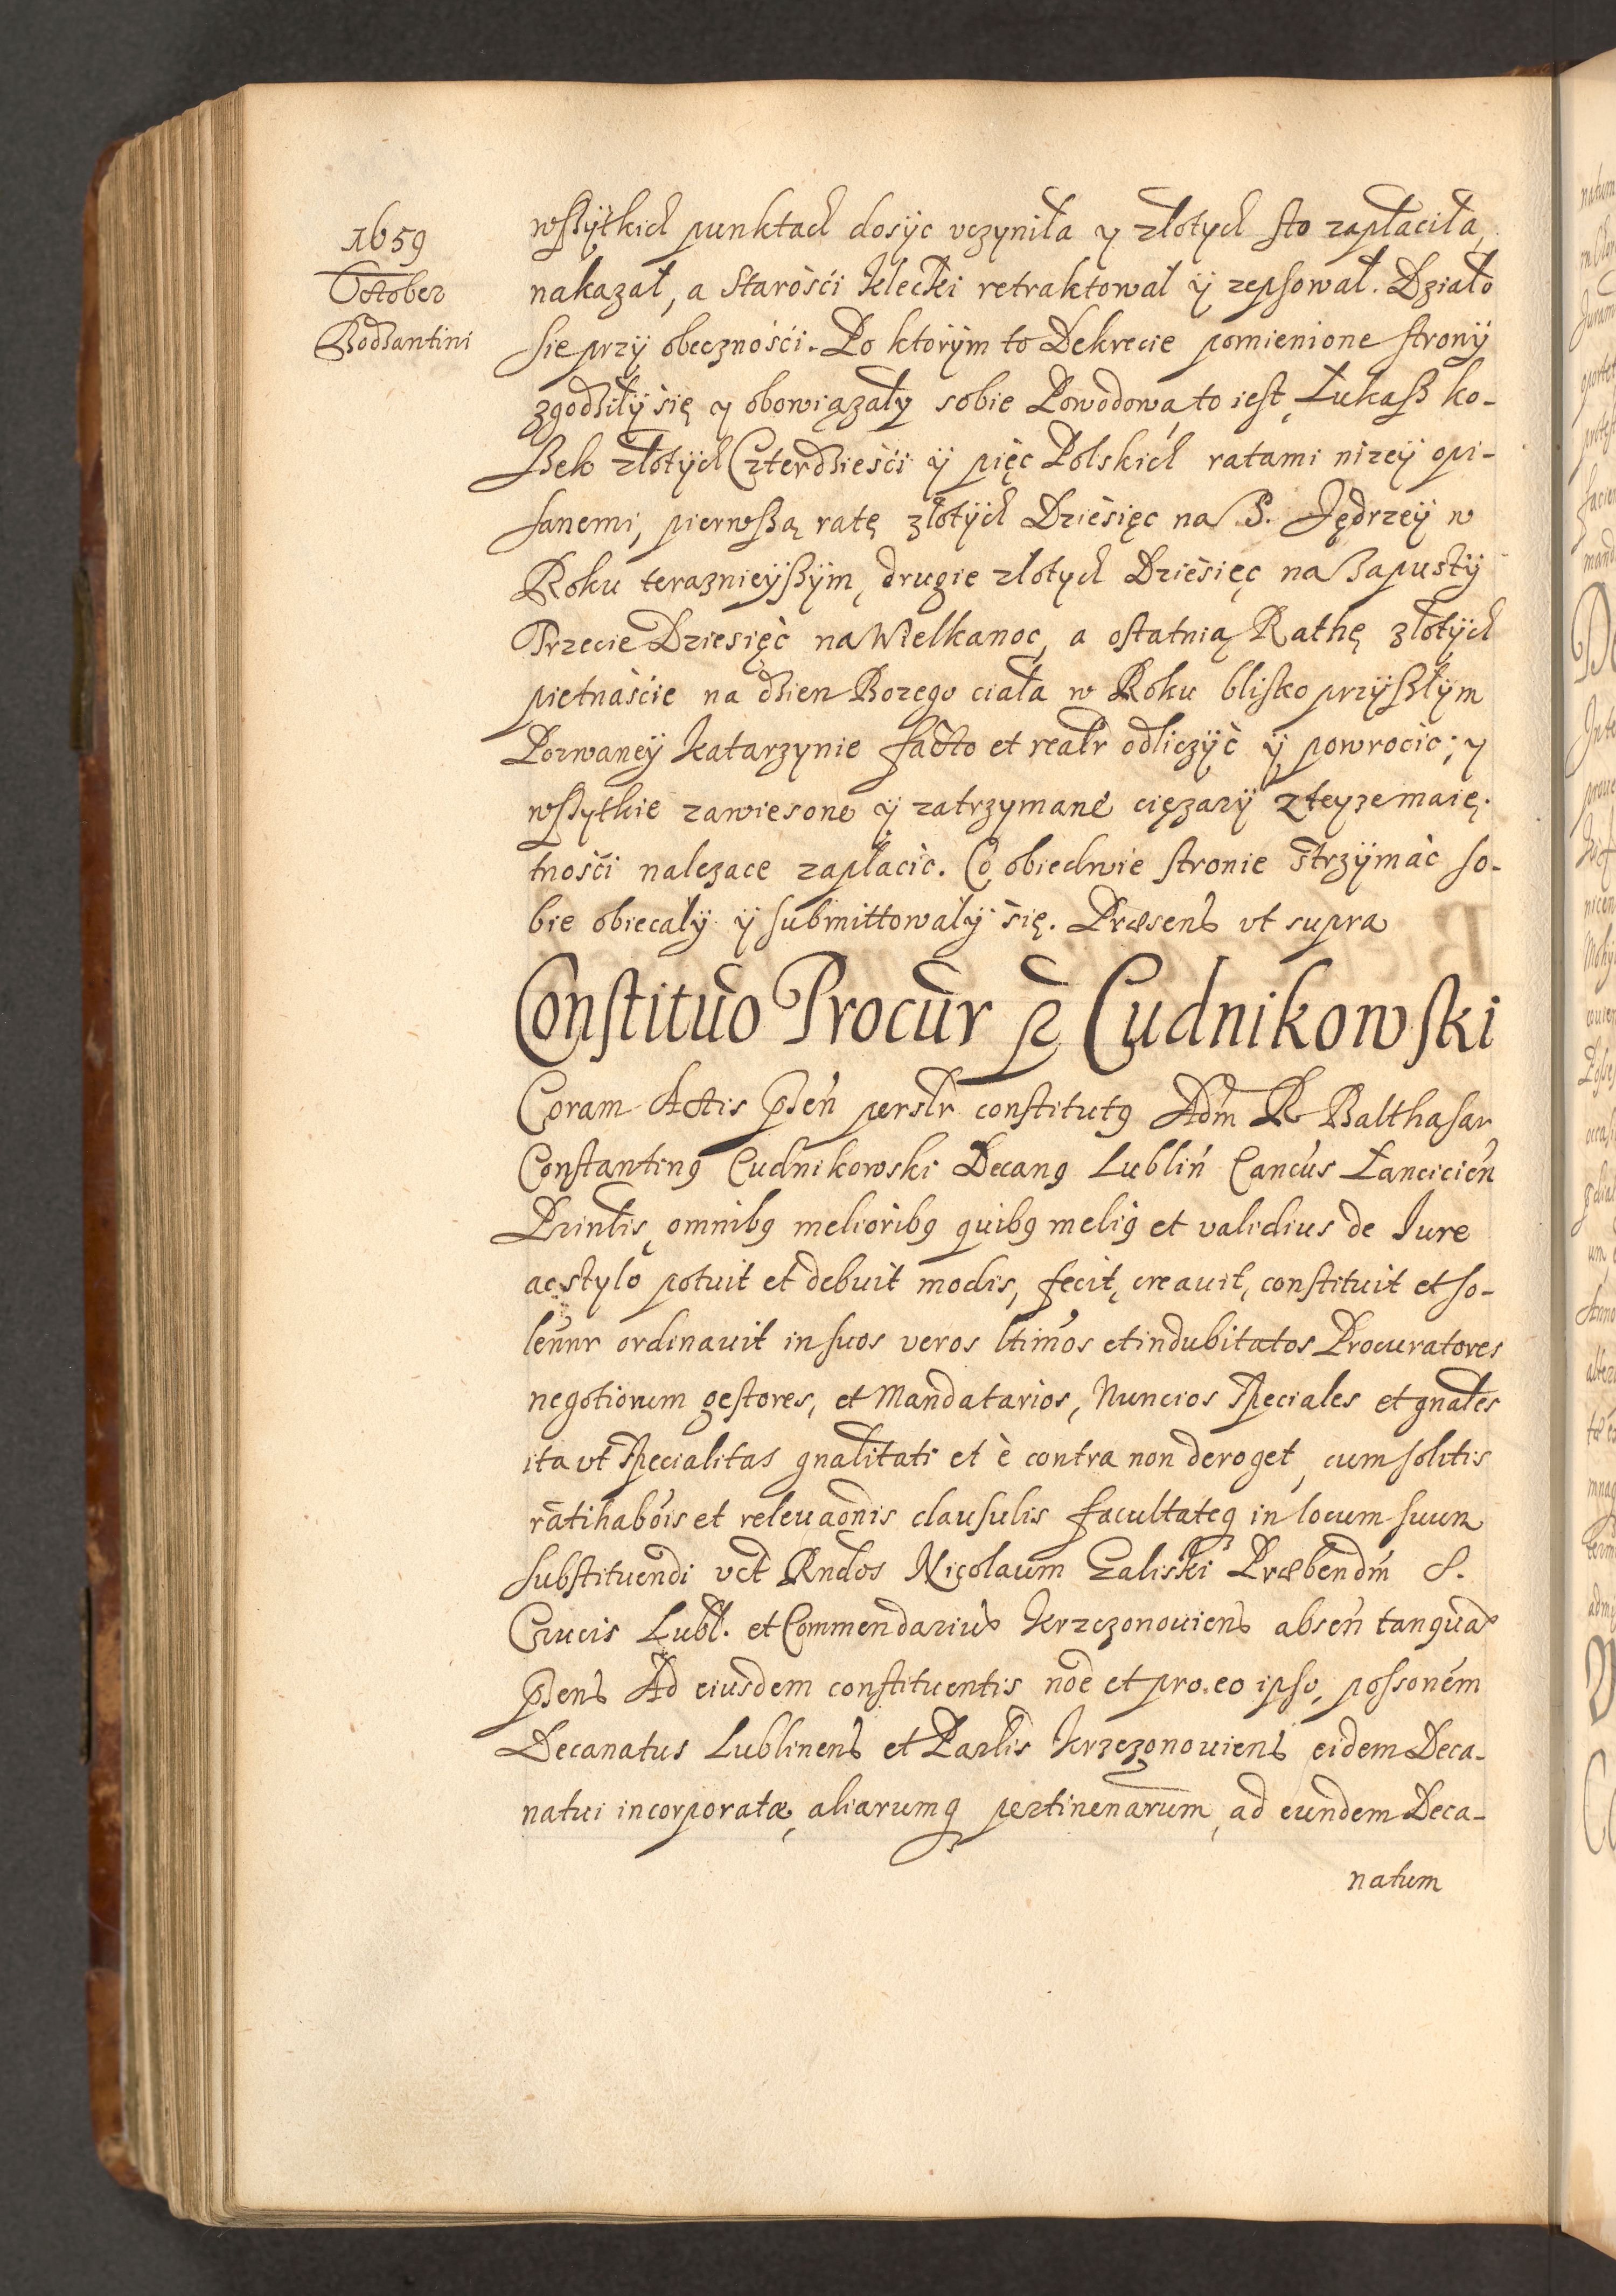 1659
October
Bodzantini
wszytkich punktach dosyc vczyniła y złotych sto zapłaciła,
nakazał, a Starośći Klecki retraktował y zepsował. Działo
sie przy obecznośći. Po ktorym to Dekrecie pomienione strony
zgodziły się y obowiązały sobie Powodowa, to iest Łukasz ko-
szek złotych Czterdzieśći y pięc Polskich ratami nizey opi-
sanemi, pierwszą ratę złotych Dziesięc na S. Jędrzey w
Roku teraznieyszym, drugie złotych Dziesięc na Zapusty
Trzecie Dziesięć na Wielkanoc, a ostatnią Rathę złotych
pietnaście na dzien Bozego ciała w Roku blisko przyszłym
Pozwaney Katarzynie facto et realr odliczyć y powrocic; y
wszytkie zawiesone y zatrzymane cięzary z teyze maię-
tnośći nalezace zapłacic. Co obiedwie stronie strzymać so-
bie obiecały y submittowały się. Præsens vt supra
Constituo Procur p Cudnikowski
Coram Actis psen perslr constitutq Adm R Balthasar
Constantinq Cudnikowski Decanq Lublin Cancus Łancicien
Printis, omnibq melioribq quibq meliq et validius de Iure
ac stylo potuit et debuit modis, fecit, creauit, constituit et so-
lennr ordinauit in suos veros ltimos et indubitatos Procuratores
negotiorum gestores, et Mandatarios, Nuncios speciales et gnales
ita vt specialitas gnalitati et è contra non deroget, cum solitis
ratihabois et releuaonis clausulis facultateq in locum suum
substituendi vct Rndos Nicolaum Zaliski Præbendm S.
Crucis Lubl. et Commendarium Krzczonouiens absen tanqua
psens Ad eiusdem constituentis noe et pro eo ipso, possonem
Decanatus Lublinens et Parlis Krzczonouiens eidem Deca-
natui incorporatæ, aliarumq pertinenarum, ad eundem Deca-
natum